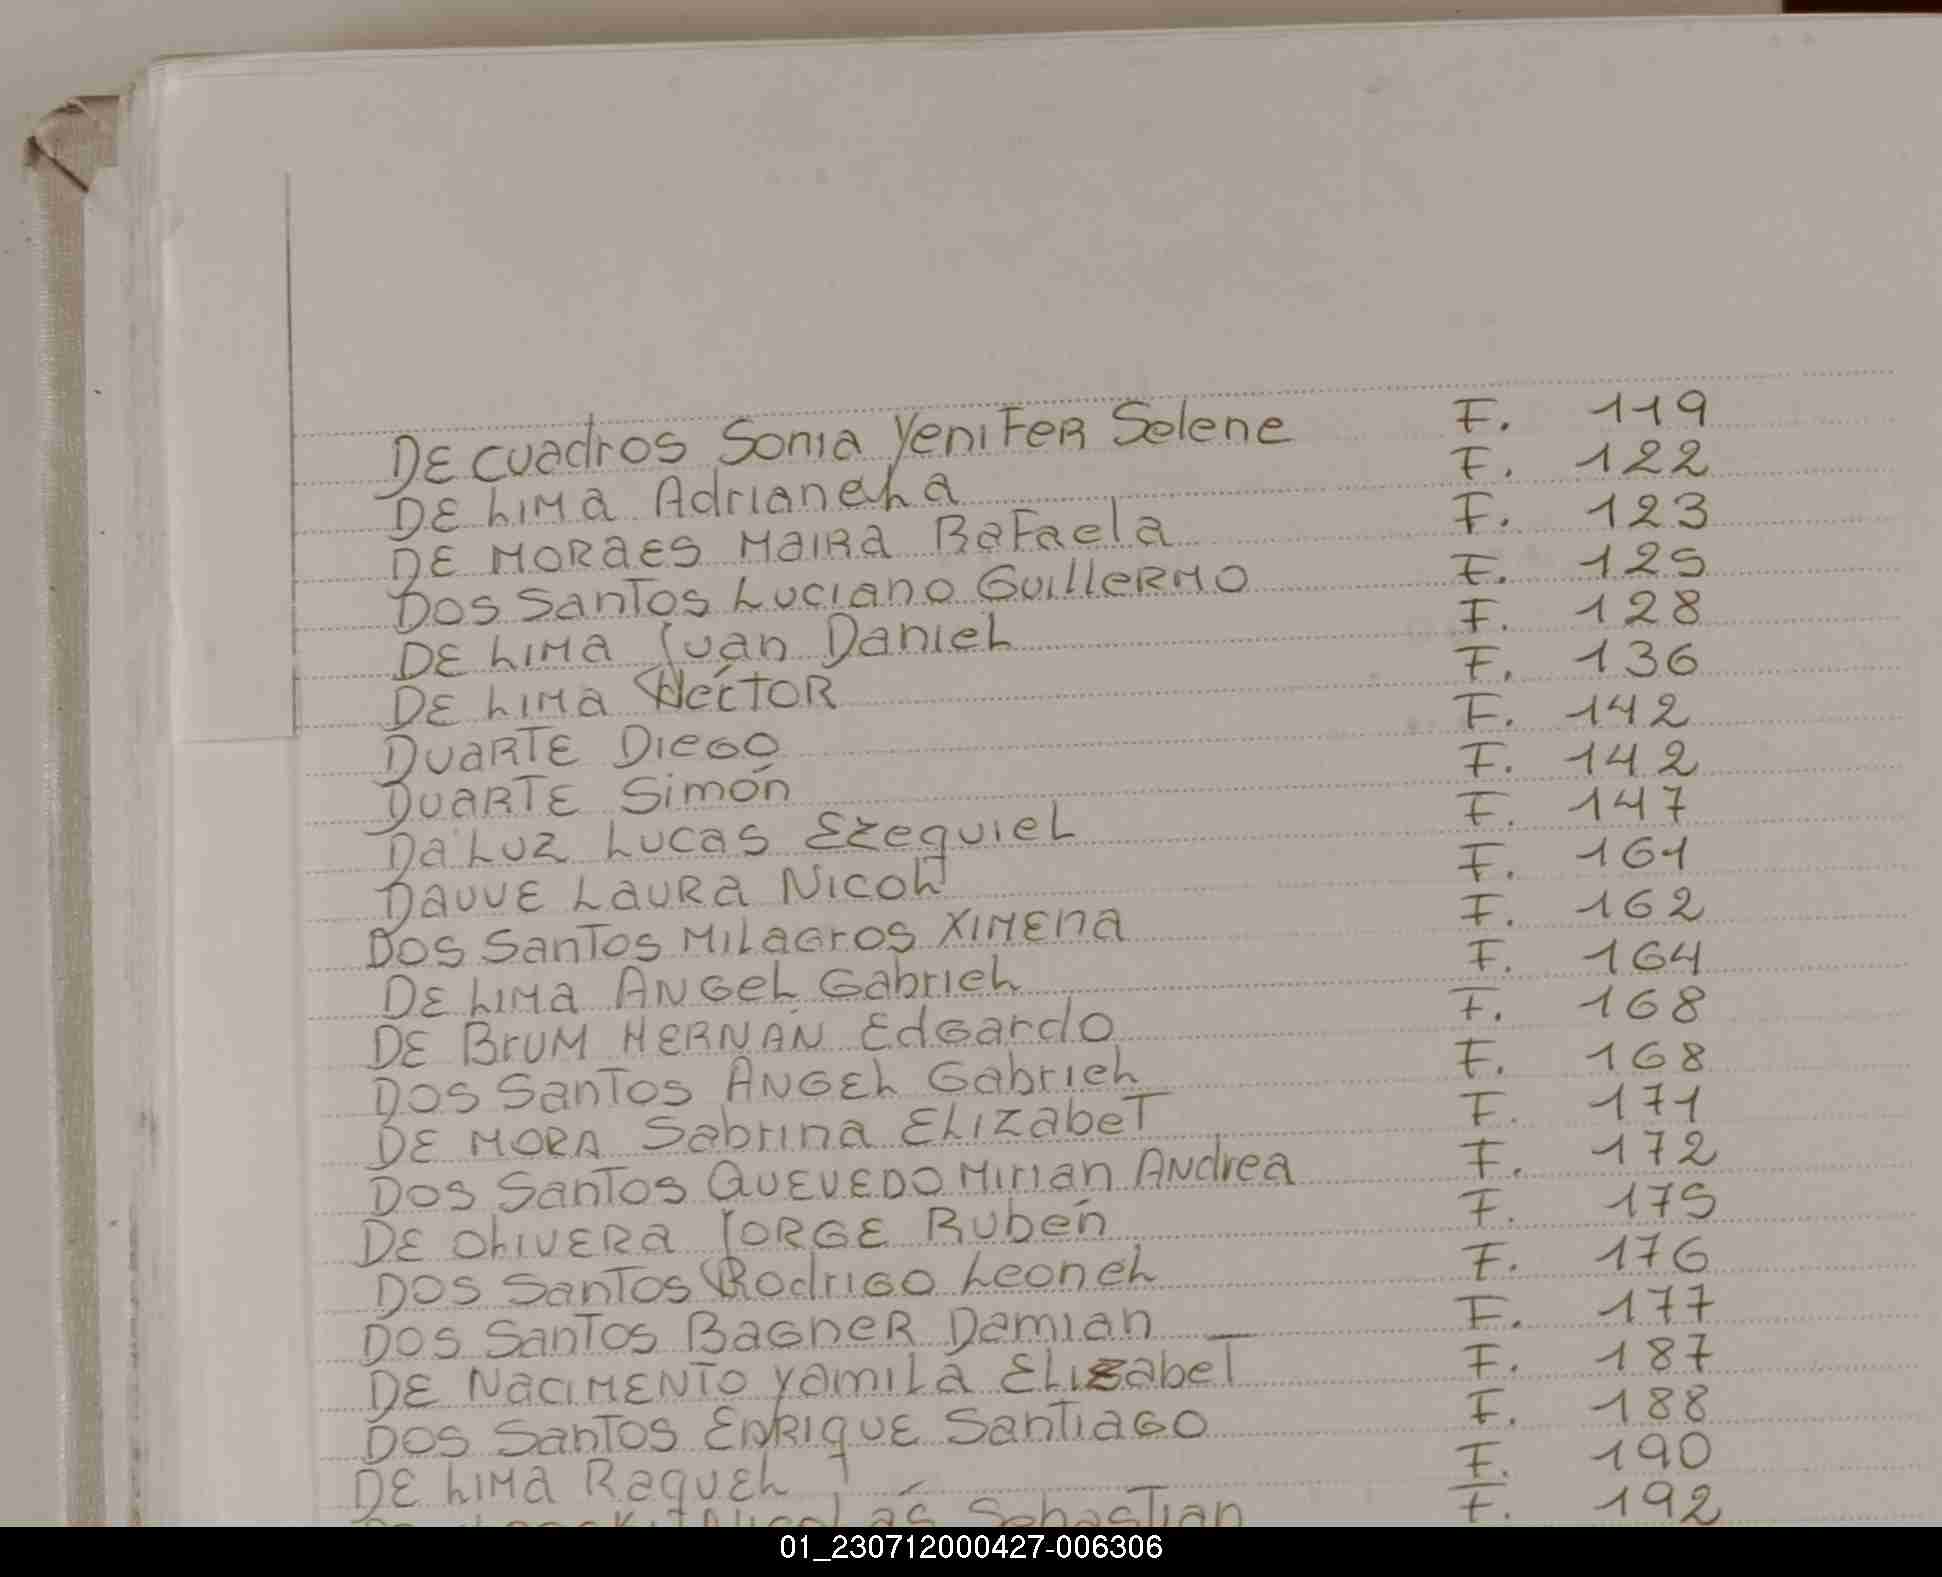 DE CUADROS SONIA YENIFER SELENE F. 119
DE LIMA ADRIANELA F. 122
DE MORAES MAIRA RAFAELA F. 123
DOS SANTOS LUCIANO GUILLERMO F. 125
DE LIMA IVAN DANIEL F. 128
DE LIMA HÉCTOR F. 136
DUARTE DIEGO F. 142
DUARTE SIMÓN F. 142
DA LUZ LUCAS EZEQUIEL F. 147
DAVVE LAURA NICOL F. 161
DOS SANTOS MILAGROS XIMENA F. 162
DE LIMA ANGEL GABRIEL F. 164
DE BRUM HERNÁN EDGARDO F. 168
DOS SANTOS ANGEL GABRIEL F. 168
DE MORA SABRINA ELIZABET F. 171
DOS SANTOS QUEVEDO MIRIAN ANDREA F. 172
DE OLIVERA JORGE RUBÉN F. 175
DOS SANTOS RODRIGO LEONEL F. 176
DOS SANTOS BAGNER DAMIAN F. 177
DE NACIMENTO YAMILA ELIZABET F. 187
DOS SANTOS ENRIQUE SANTIAGO F. 188
DE LIMA RAQUEL F. 190
SEBASTIAN F. 192
01_230712000427-006306